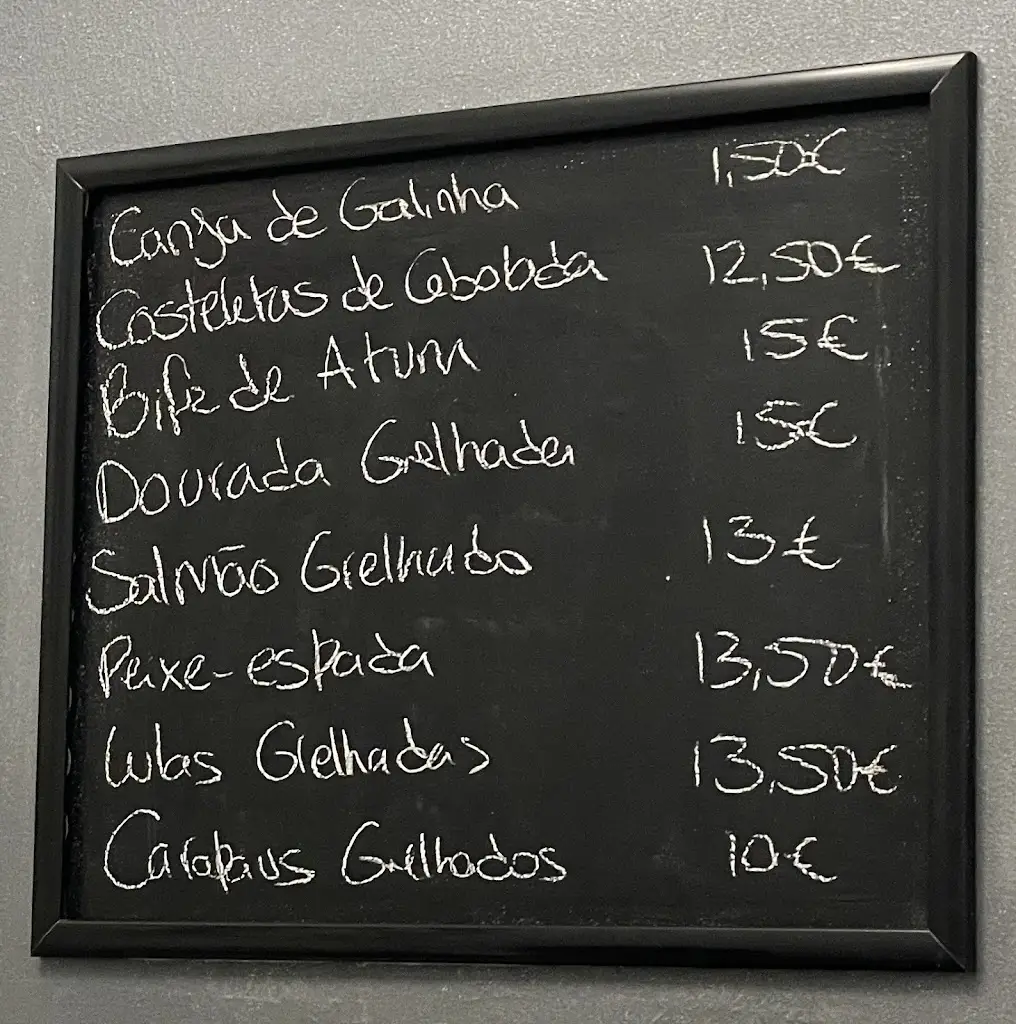 Canja de Galinha 1,50€
Costeletas de Cebolada 12,50€
Bife de Atum 15€
Dourada Grelhada 15€
Salmão Grelhado 13€
Peixe-espada 13,50€
Lulas Grelhadas 13,50€
Carapaus Grelhados 10€